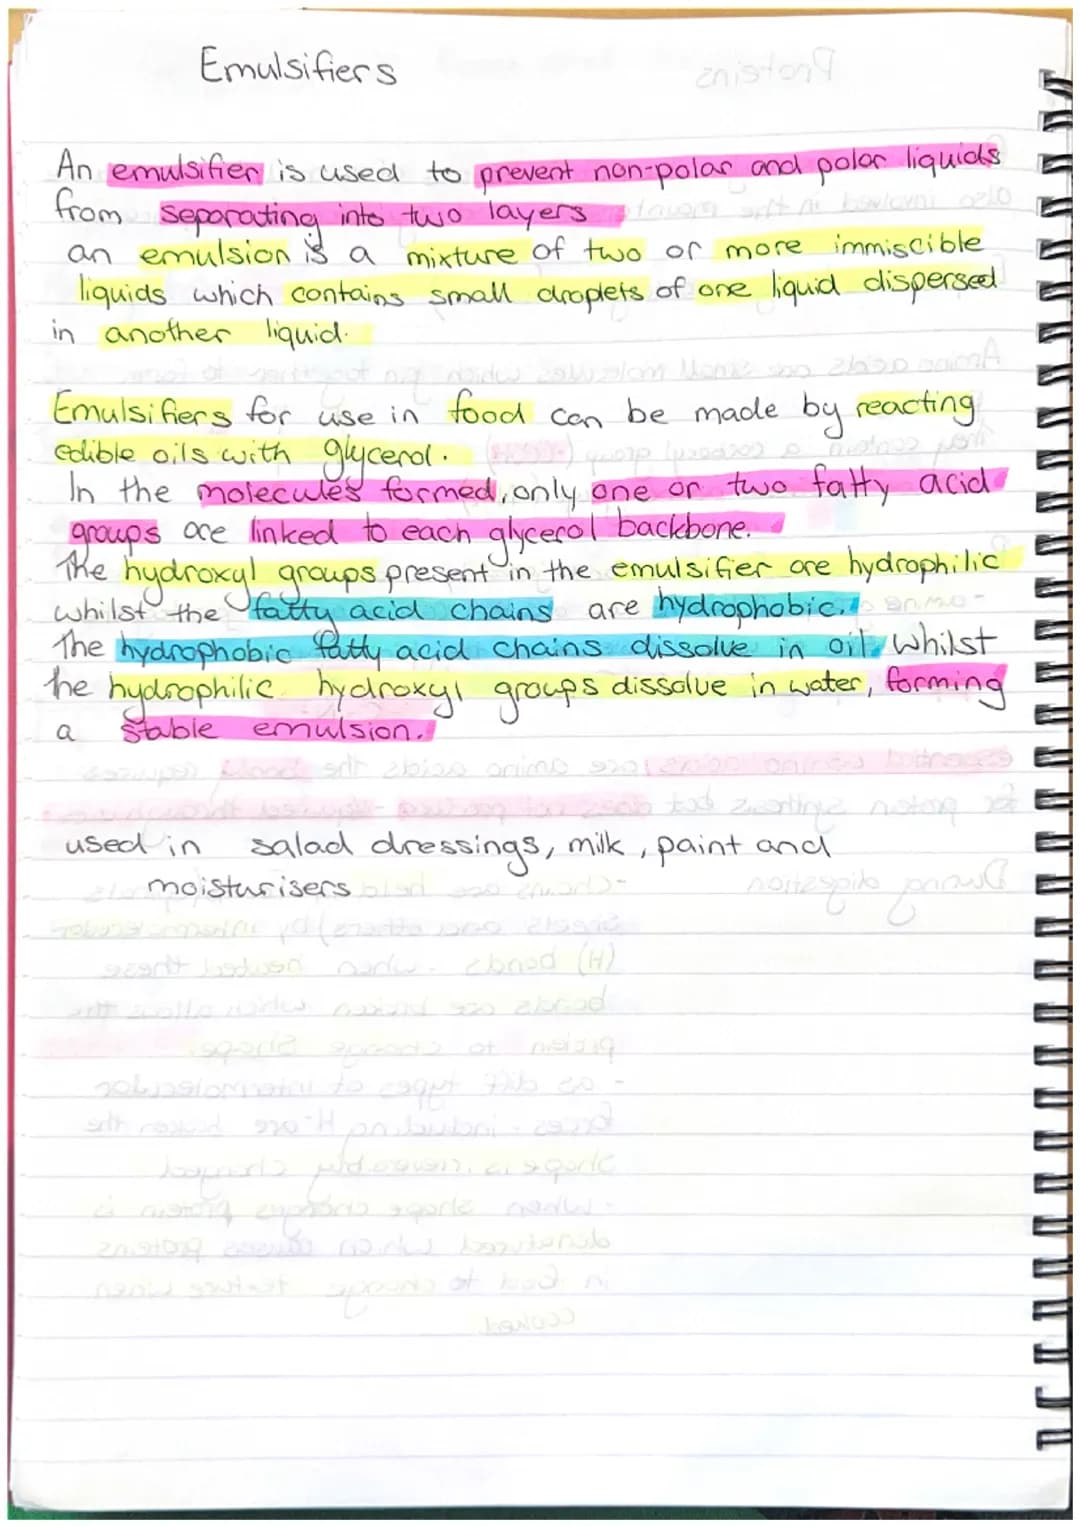 Emulsifiers
An emulsifier is used to prevent non-polar and polar liquids
from separating into two layers
an emulsion is a mixture of two or more immiscible
liquids which contains small droplets of one liquid dispersed
in another liquid.
Emulsifiers for use in food can be made by reacting
edible oils with glycerol.
In the molecules formed, only one or two fatty acid
groups are linked to each glycerol backbone.
The hydroxyl groups present in the emulsifier are hydrophilic
whilst the fatty acid chains are hydrophobic.
The hydrophobic fatty acid chains dissolve in oil, whilst
the hydrophilic hydroxyl groups dissolve in water, forming
a stable emulsion.
used in salad dressings, milk, paint and
moisturisers